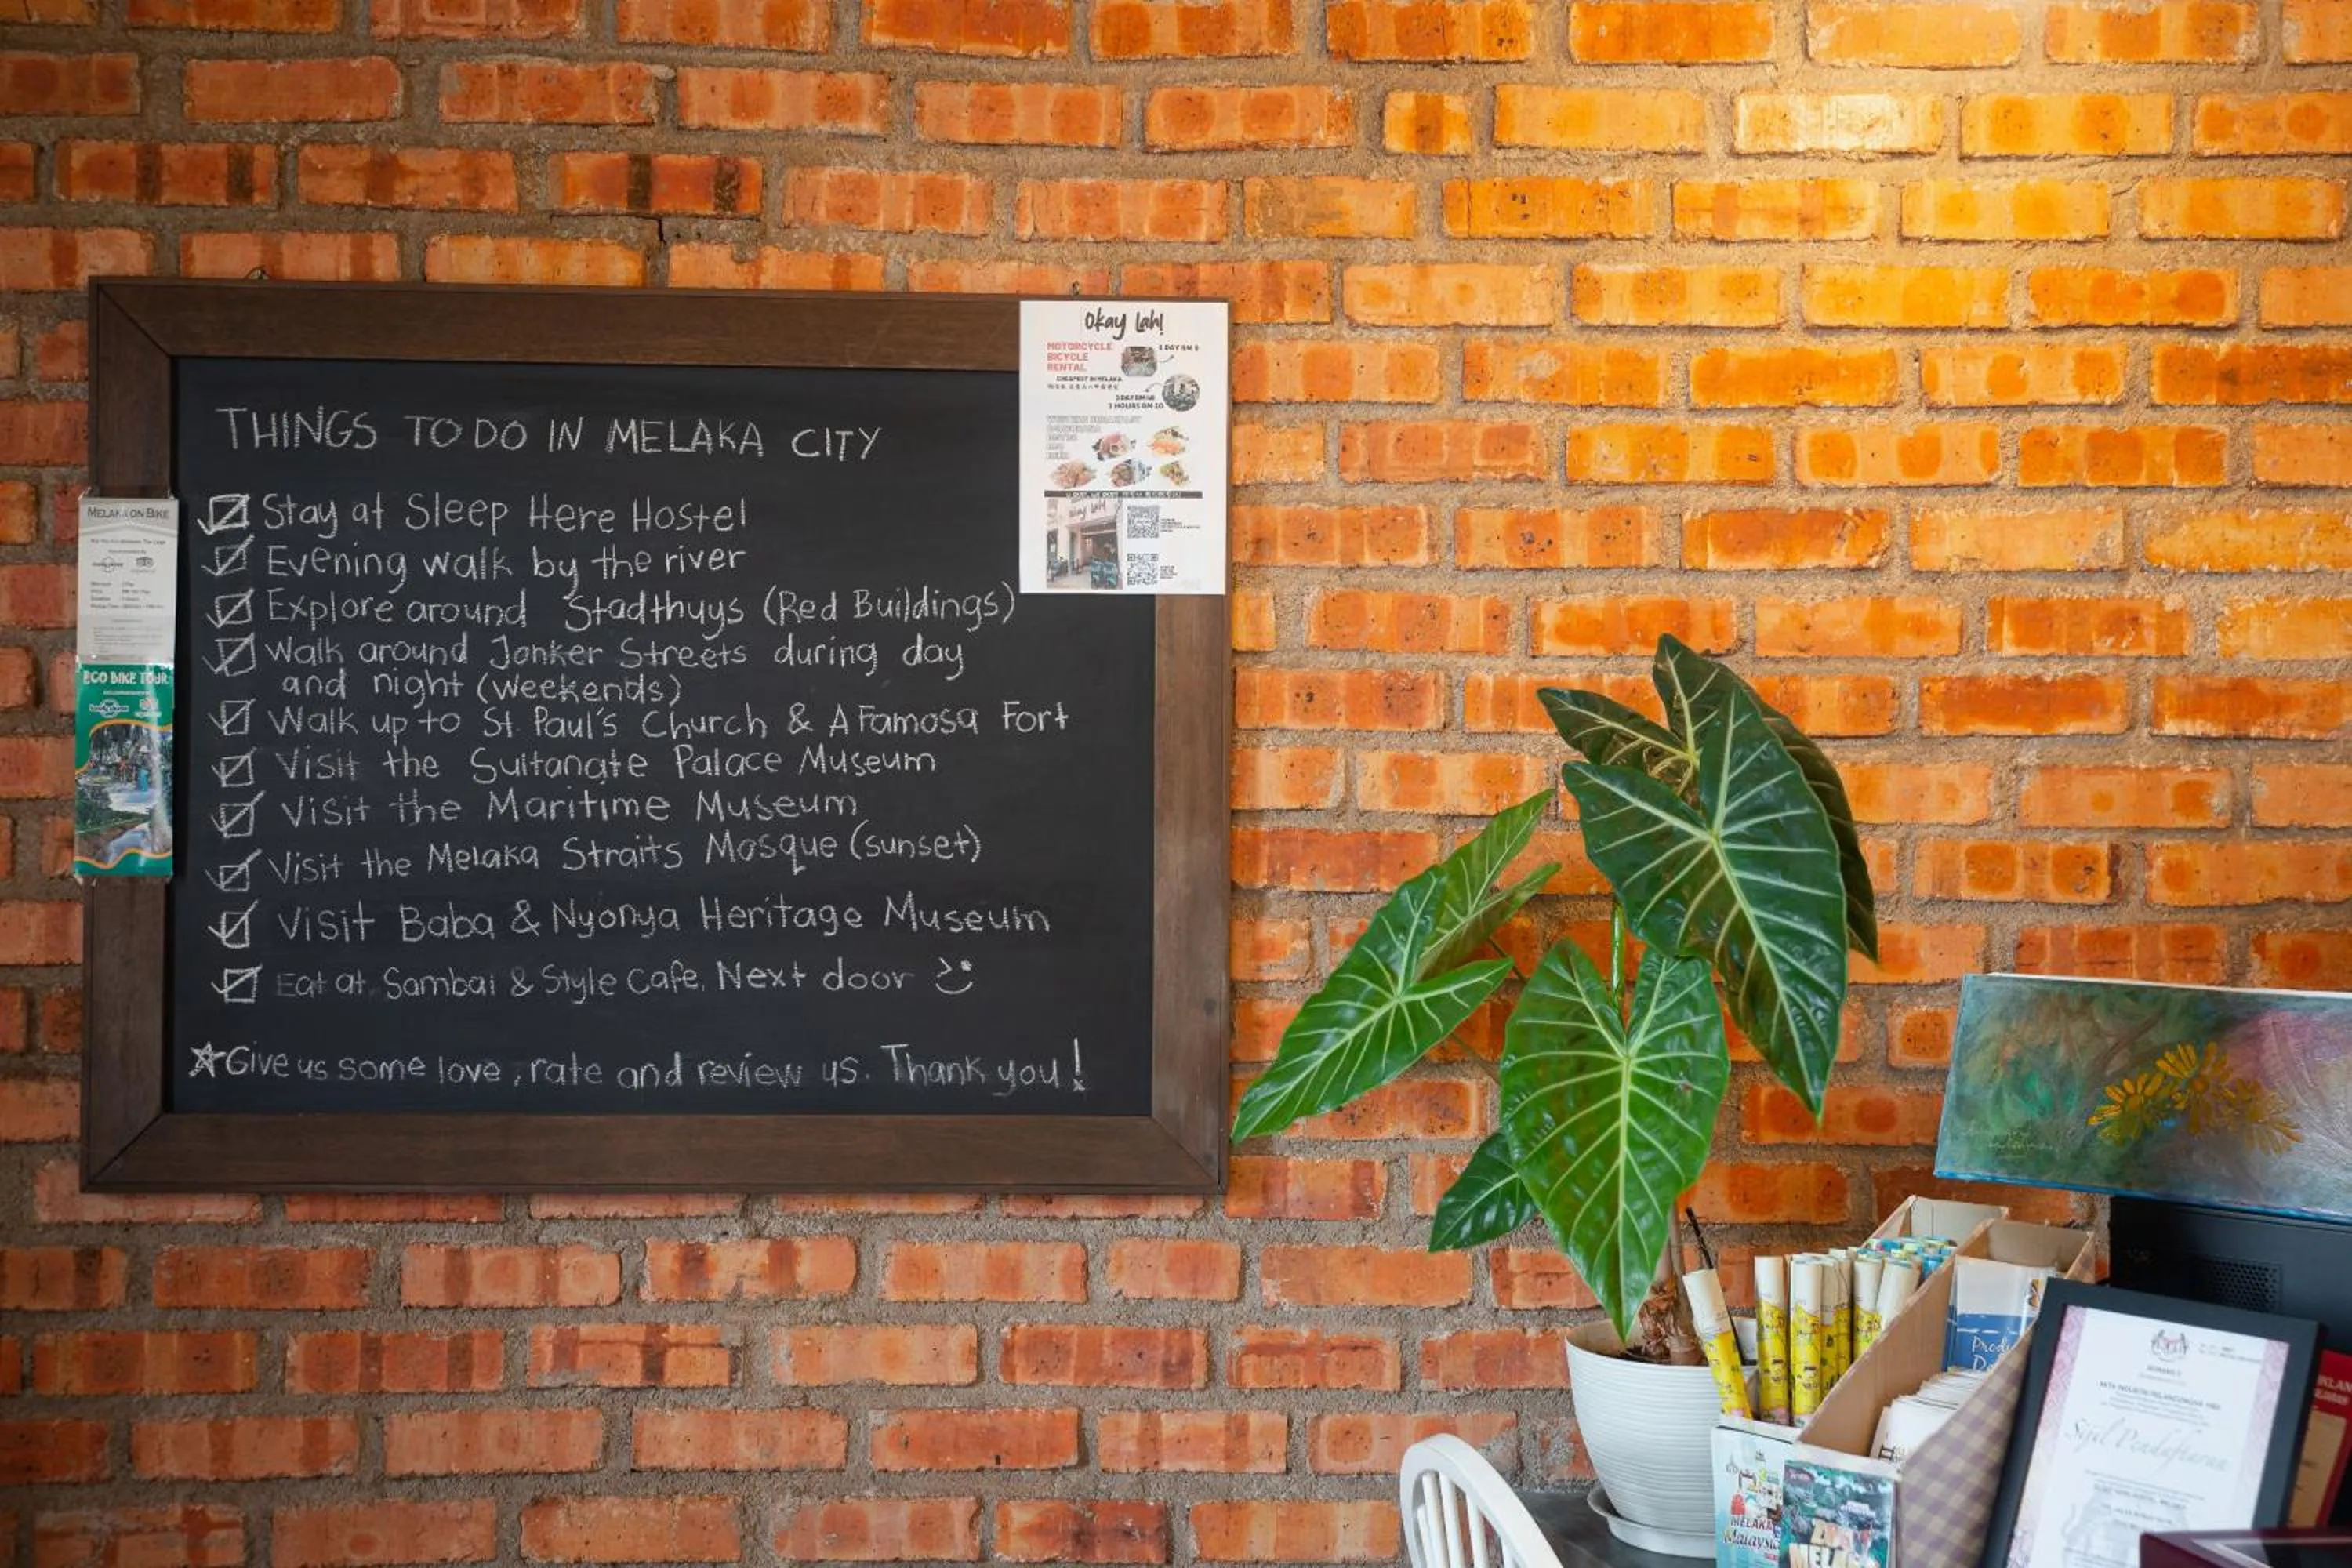 THINGS TO DO IN MELAKA CITY
Stay at Sleep Here Hostel
Evening walk by the river
Explore around Stadthuys (Red Buildings)
Walk around Jonker Streets during day
and night (weekends)
Walk up to St. Paul's Church & A Famosa Fort
Visit the Sultanate Palace Museum
Visit the Maritime Museum
Visit the Melaka Straits Mosque (sunset)
Visit Baba & Nyonya Heritage Museum
Eat at Sambal & Style Cafe. Next door
Give us some love, rate and review us. Thank you!
Okay Lah!
MOTORCYCLE
BICYCLE
RENTAL
CHEAPEST IN MELAKA
MELAKA ON BIKE
ECO BIKE TOUR
Okay Lah!
MELAKA
Malaysia
Sijil Pendaftaran